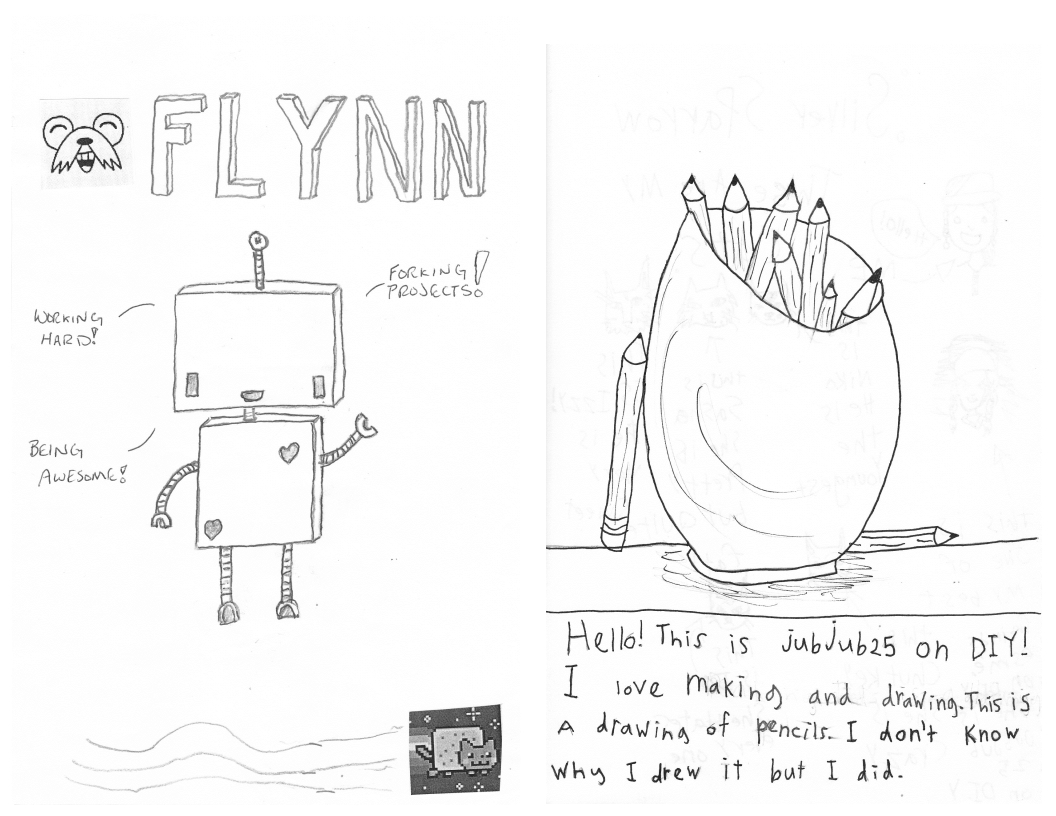 FLYNN
FORKING!
PROJECTS!
WORKING
HARD!
BEING
AWESOME!
Hello! This is jubJub25 on DIY!
I love making and drawing. This is
A drawing of pencils. I don't know
why I drew it but I did.